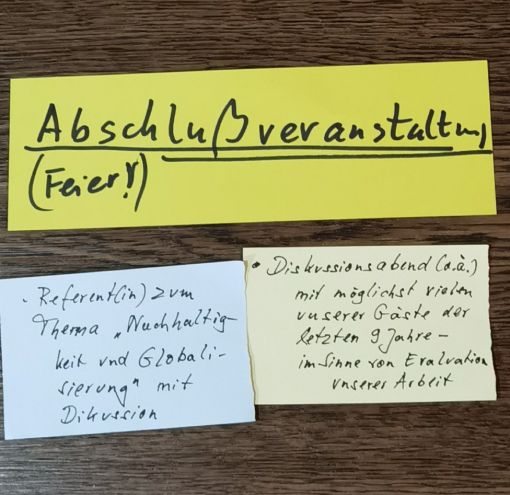 Abschlußveranstaltung
(Feier!)
. Referent(in) zum
Thema „Nachhaltig-
keit und Globali-
sierung" mit
Dikussion
• Diskussionsabend (o.ä.)
mit möglichst vielen
unserer Gäste der
letzten 9 Jahre –
im Sinne von Evaluation
unserer Arbeit